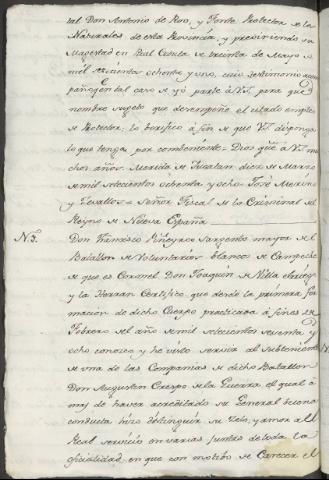 tal Don Antonio de Roo, y Fonte Protector de los
Naturales de esta Provincia, y previniendo su
Magestad en Real Cedula de treinta de Mayo de
mil setecientos ochenta y uno, cuio testimonio acom
pañe en tal caso se yó parte à V.S. para que
nombre sugeto que desempeñe el citado empleo
de Protector; lo verifico à fin de que V.S. disponga
lo que tenga por combeniente. Dios gue. à V.S. mu
chos años. Merida de Yucatan diez de Marzo
de mil setecientos ochenta, y ocho. José Merino
y Zevallos = Señor Fiscal de lo Criminal del
Reyno de Nueva España
N.3.
Don Francisco Piñeyro Sargento mayor del
Batallon de Voluntarios blancos de Campeche
de que es Coronel Don Joaquin de
y la Certifico, que desde la primera for
macion de dicho Cuerpo practicada à fines de
Febrero del año de mil setecientos setenta, y
ocho conosco y he visto servir al subteniente
de una de las Compañias de dicho Batallon
Don Augustin Crespo de la Guerra, el qual à
mas de haver acreditado su General buena
conducta hizo distinguir su zelo, y amor al
Real servicio en varias juntas de toda la
oficialidad, en que con motibo de Carecer el